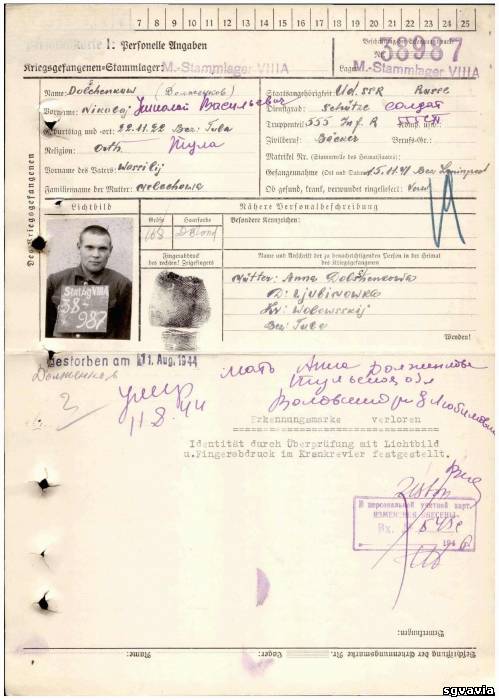 7 8 9 10 11 12 13 14 15 16 17 18 19 20 21 22 23 24 25
Personalkarte I: Personelle Angaben
Kriegsgefangenen-Stammlager: M.-Stammlager VIIIA
Beschriftung der Erkennungsmarke
Nr. 38987
Lager: M.-Stammlager VIIIA
Des Kriegsgefangenen
Name: Dolchenkow
Vorname: Nikolaj Николай Васильевич
Geburtstag und -ort: 22.11.22 Bez: Tula
Religion: Orth. Тула
Vorname des Vaters: Wassilij
Familienname der Mutter: Melechowa
Staatsangehörigkeit: UdSSR Russe
Dienstgrad: Schütze солдат
Truppenteil: 555 Inf. R Komp. usw.:
Zivilberuf: Bäcker Berufs-Gr.:
Matrikel Nr. (Stammrolle des Heimatstaates):
Gefangennahme (Ort und Datum): 15.11.41 Bez Leningrad
Ob gesund, krank, verwundet eingeliefert:
Lichtbild
Nähere Personalbeschreibung
Größe
Haarfarbe
Besondere Kennzeichen:
168
D.blond
Fingerabdruck
des rechten! Zeigefingers
Name und Anschrift der zu benachrichtigenden Person in der Heimat
des Kriegsgefangenen
Stalag VIIIA
38
987
Mutter: Anna Dolshenkowa
D: Ljubimowka
Kr: Wolowsskij
Bez: Tula
Wenden!
Gestorben am 11. Aug. 1944
Долженков
умер
11.8.44
мать Анна Долженкова
Тульская обл
Воловский р
Erkennungsmarke verloren
Identität durch Überprüfung mit Lichtbild
u.Fingerabdruck im Krankrevier festgestellt.
В персональной учетной карт.
ИЗМЕНЕНИЯ ВНЕСЕНЫ
Вх.
194 6
Bemerkungen:
Beschriftung der Erkennungsmarke Nr.
Lager:
Name:
sgvavia